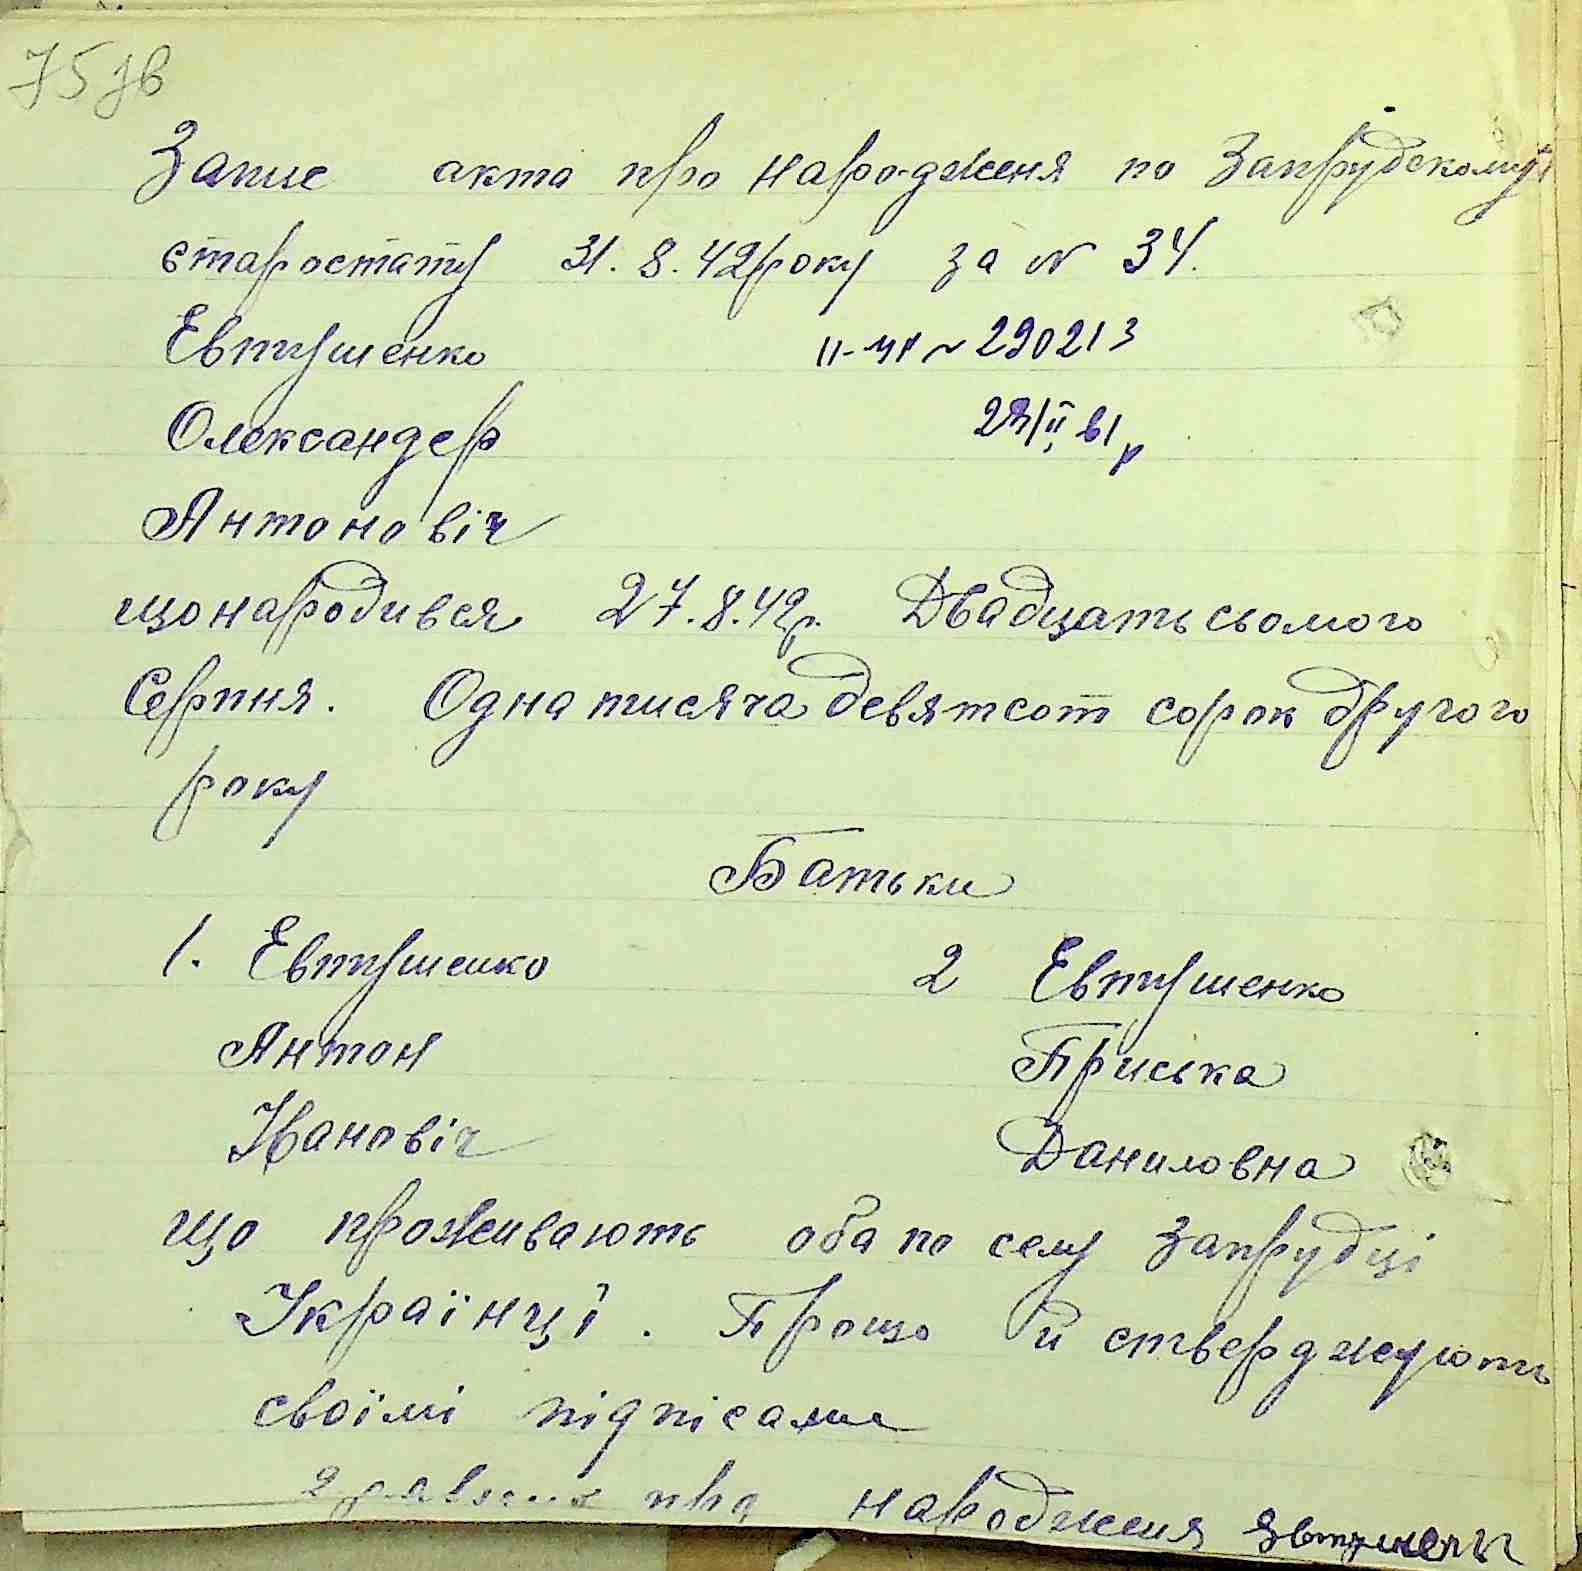 75зв
Запис акта про народженя по Запрудскому
старостату 31.8.42 року за N 34.
Евтушенко II-УР N 290213
Олександер
Антоновіч
що народився 27.8.42р. Двадцать сьомого
Серпня. Одна тисяча девятсот сорок другого
року
Батьки
1. Евтушенко 2 Евтушенко
Антон Приська
Івановіч Даниловна
що проживають оба по селу Запрудці
Українці. Прощо й стверджують
своїмі підпісами
про народженя